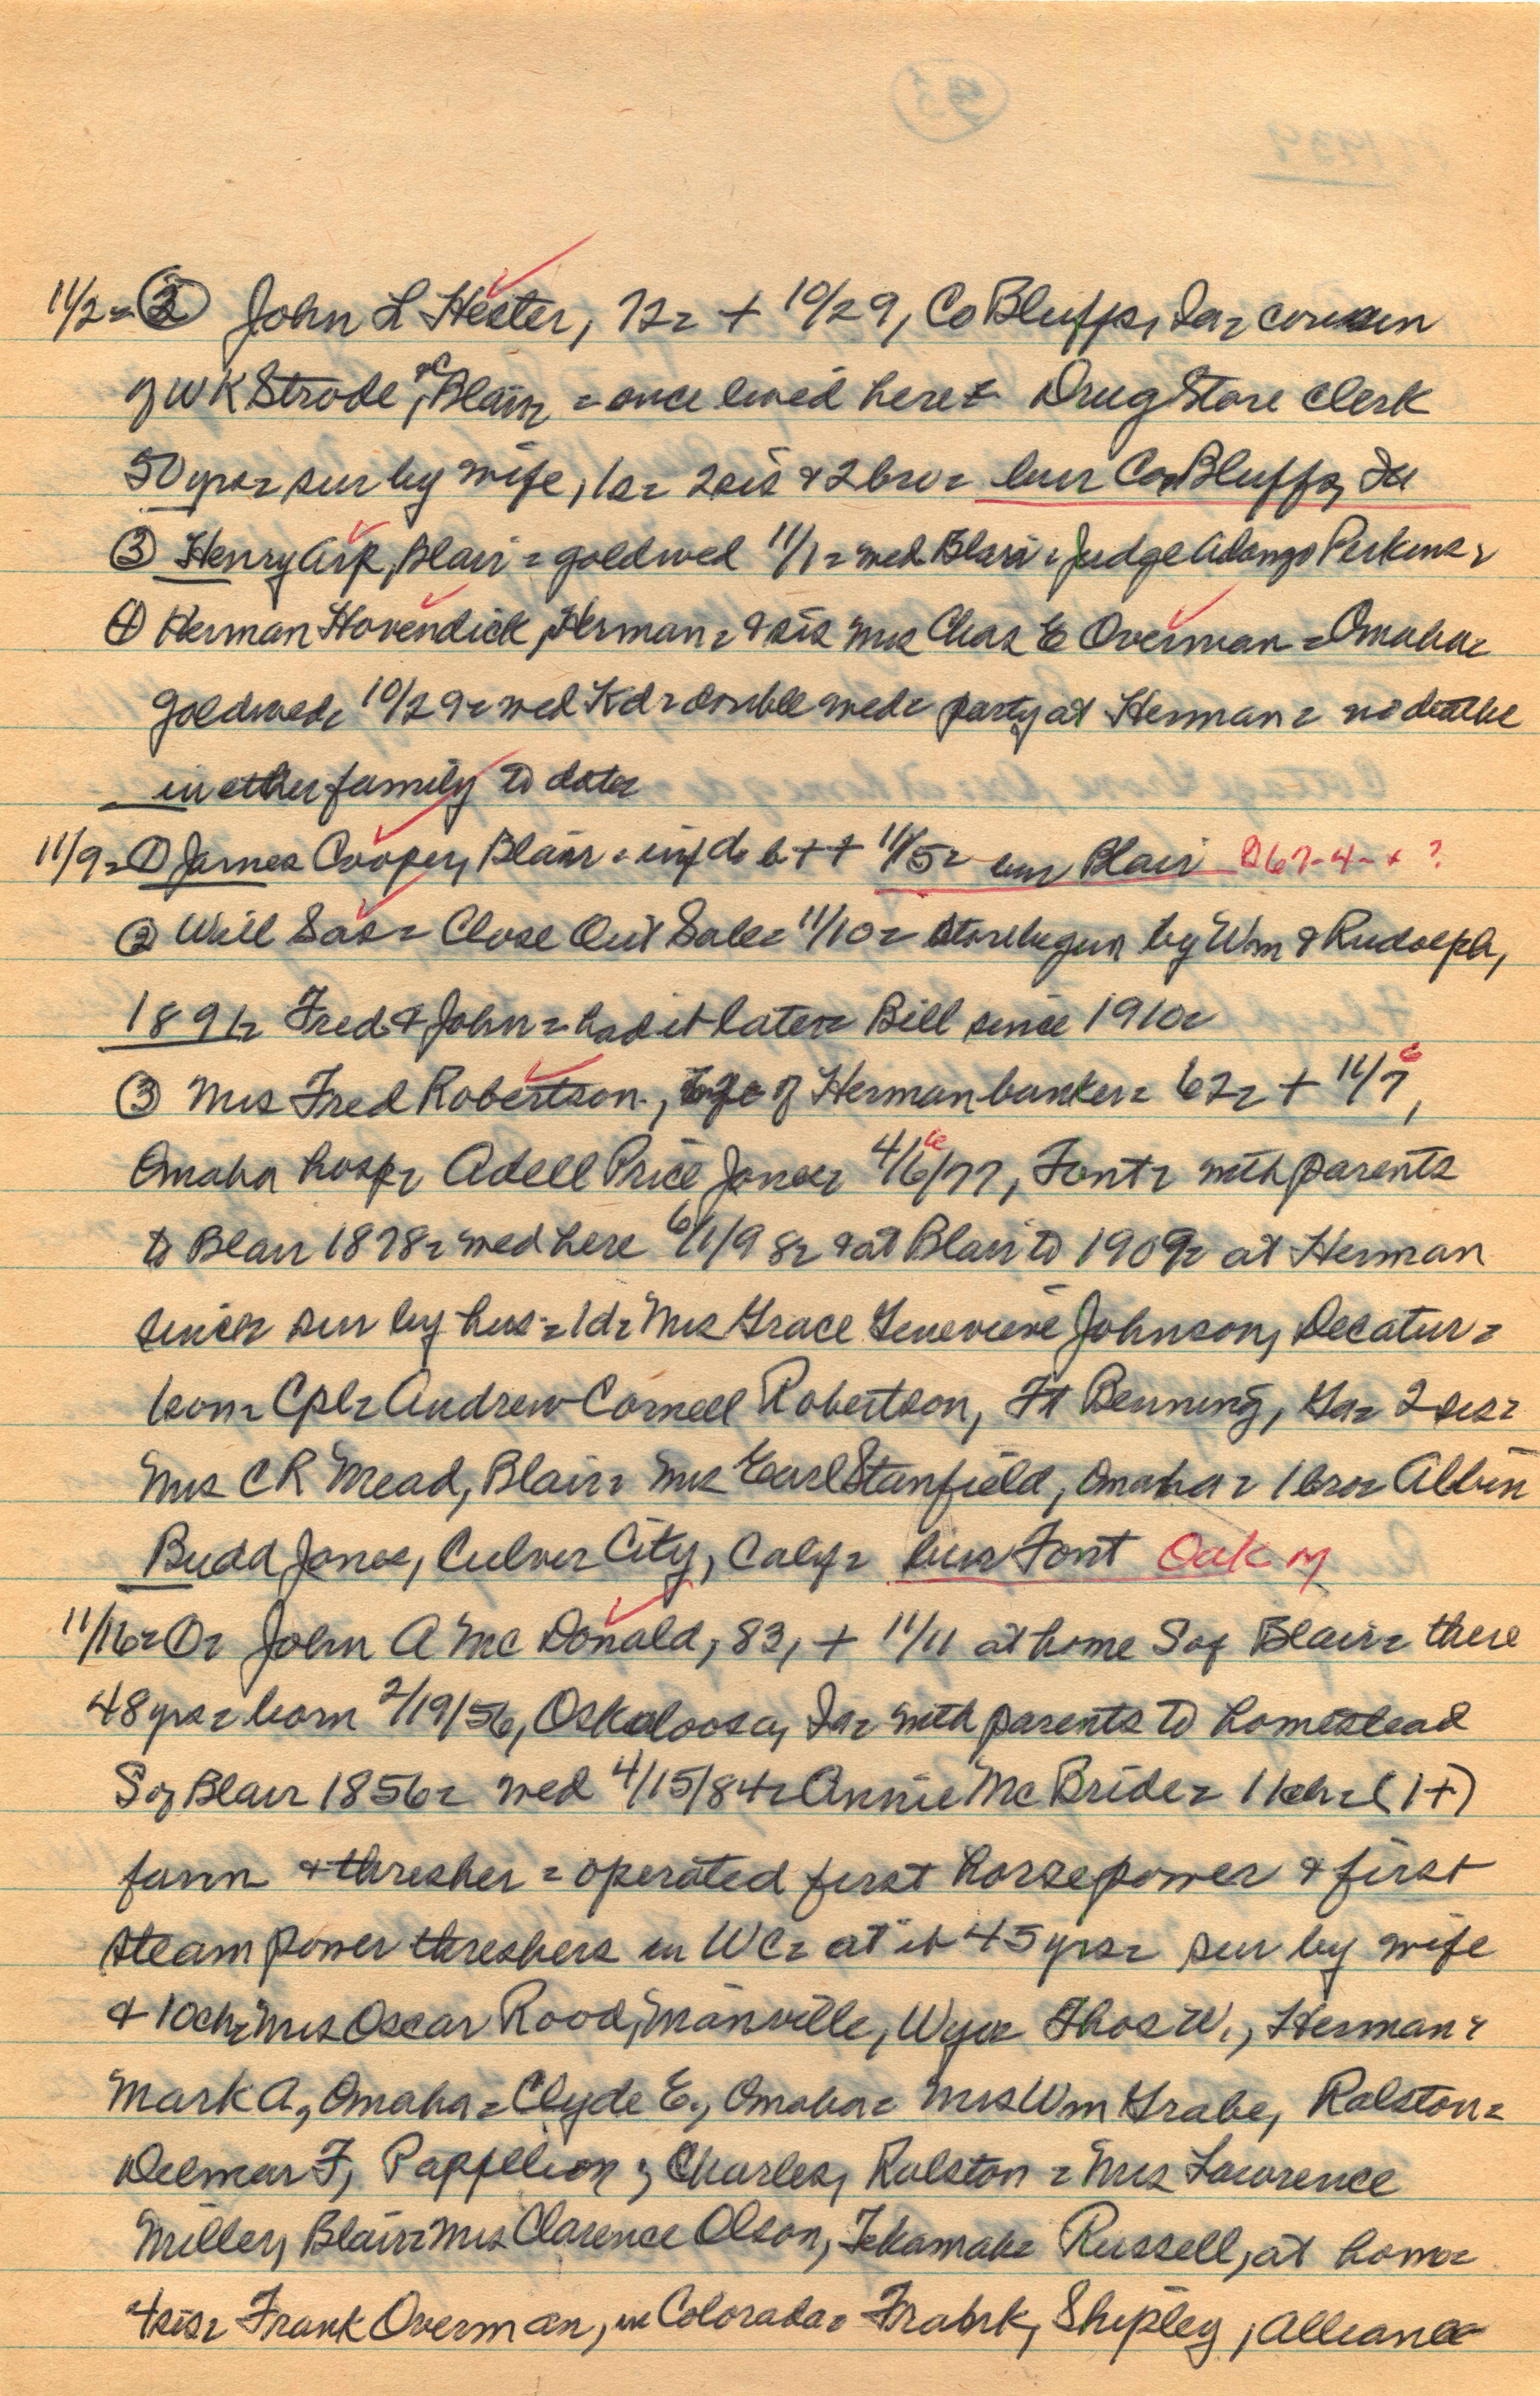 11/2= ② John L Hester, 72= + 10/29, Co Bluffs, Ia= cousin
of WK Strode, Blair = once lived here= Drug Store clerk
50 yrs= sur by wife, 1s= 2sis & 2bro= bur Co Bluffs, Ia
③ Henry Arp, Blair = goldwed 11/1= wed Blair = Judge Alonzo Perkins=
④ Herman Hovendick, Herman= & sis Mrs Chas E Overman = Omaha=
goldwed= 10/29= wed Kd= double wed= party at Herman= no deaths
in either family to date=
11/9= ① James Cooper, Blair = inf d= b + + 11/5= bur Blair 067-4-x ?
② Will Sas= Close Out Sale= 11/10= store begun by Wm & Rudolph,
1891= Fred & John = had it later= Bill since 1910=
③ Mrs Fred Robertson, wife of Herman banker= 62= + 11/7, 6
Omaha hosp= Adell Price Jones= 4/6/77, Font= with parents
to Blair 1878= wed here 6/1/98= & at Blair to 1909= at Herman
since= sur by hus = 1d= Mrs Grace Genevieve Johnson, Decatur=
1son= Cpl= Andrew Cornell Robertson, Ft Benning, Ga= 2 sis=
Mrs CR Mead, Blair= Mrs Earl Stanfield, Omaha= 1bro= Albin
Budd Jones, Culver City, Calif= bur Font Oak
11/16= ①= John A McDonald, 83, + 11/11 at home S of Blair= there
48 yrs= born 2/19/56, Oskaloosa, Ia= with parents to homestead
S of Blair 1856= wed 4/15/84= Annie McBride= 11ch= (1+)
farm & thresher = operated first horsepower & first
steam power threshers in WC= at it 45 yrs= sur by wife
& 10ch= Mrs Oscar Rood, Manville, Wyo= Thos W., Herman=
Mark A, Omaha= Clyde E., Omaha= Mrs Wm Grabe, Ralston=
Delmar F, Papillion; Charles, Ralston = Mrs Lawrence
Miller, Blair= Mrs Clarence Olson, Tekamah= Russell, at home=
4sis= Frank Overman, in Colorado= Frabrk, Shipley, Alliance